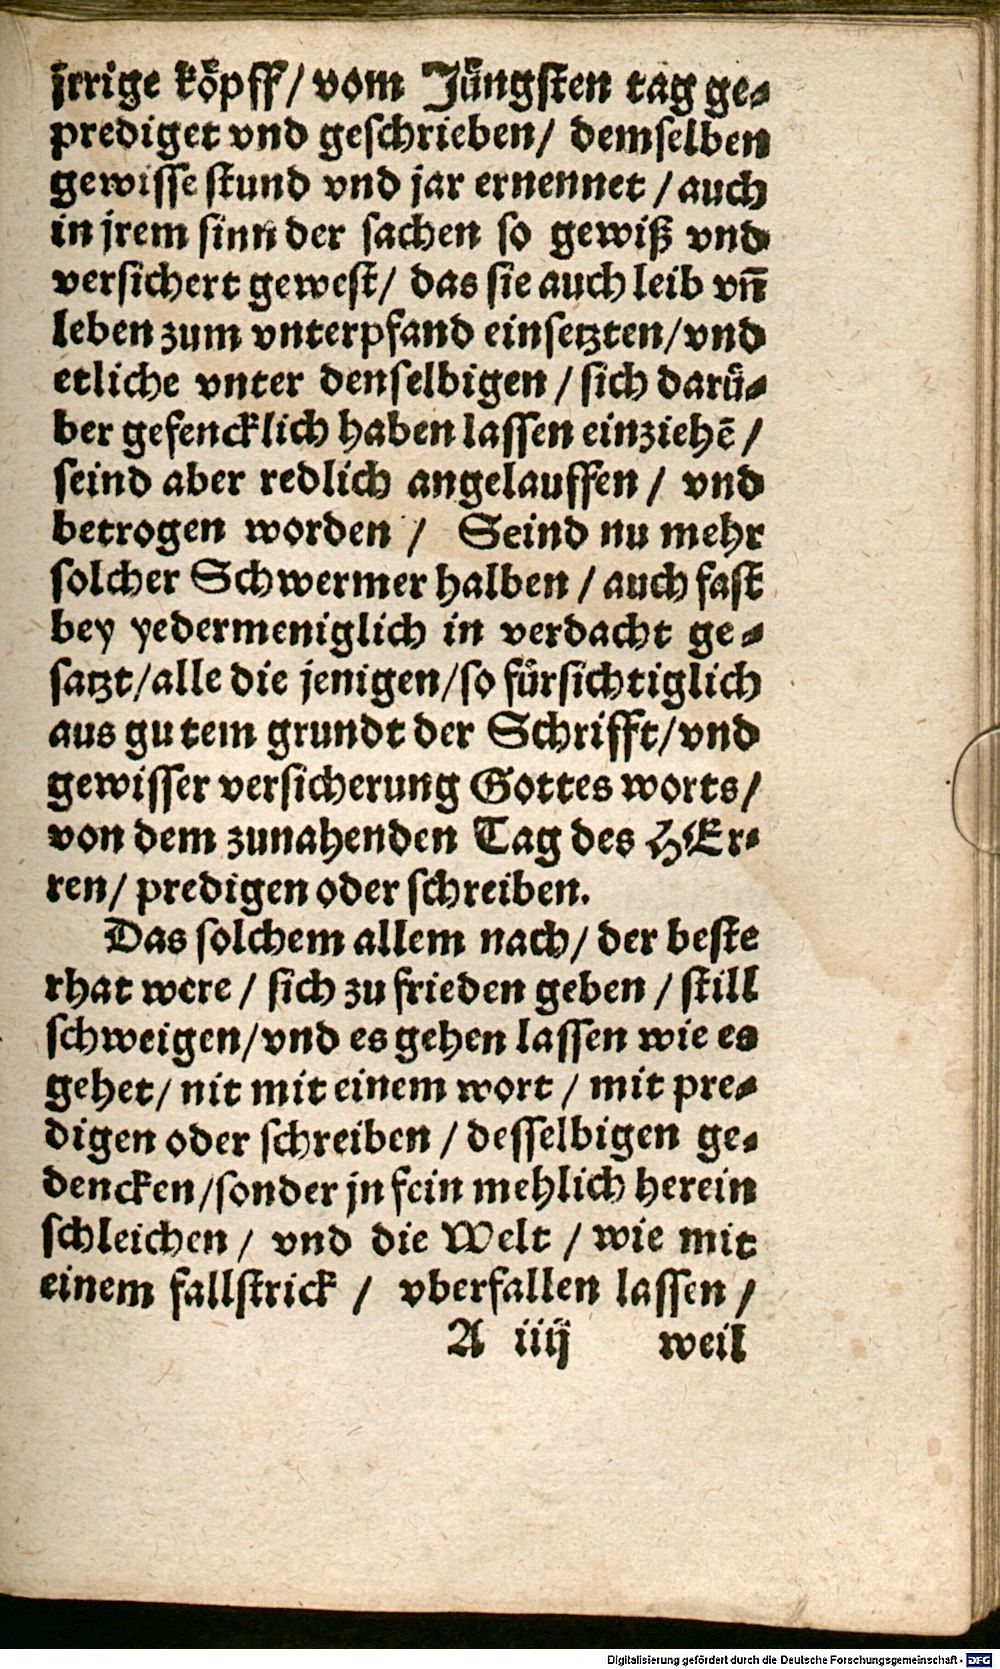 jrrige koͤpff/ vom Juͤngsten tag ge-
prediget vnd geschrieben/ demselben
gewisse stund vnd jar ernennet / auch
in jrem sinn der sachen so gewiß vnd
versichert gewest/ das sie auch leib vn̄
leben zum vnterpfand einsetzten/vnd
etliche vnter denselbigen / sich daruͤ-
ber gefencklich haben lassen einziehē /
seind aber redlich angelauffen / vnd
betrogen worden / Seind nu mehr
solcher Schwermer halben / auch fast
bey yedermeniglich in verdacht ge-
satzt/alle die jenigen/so fuͤrsichtiglich
aus gutem grundt der Schrifft/vnd
gewisser versicherung Gottes worts/
von dem zunahenden Tag des HEr-
ren/ predigen oder schreiben.
Das solchem allem nach/ der beste
rhat were / sich zu frieden geben / still
schweigen/vnd es gehen lassen wie es
gehet/ nit mit einem wort / mit pre-
digen oder schreiben / desselbigen ge-
dencken/sonder jn fein mehlich herein
schleichen / vnd die Welt / wie mit
einem fallstrick / vberfallen lassen /
A iiij weil
Digitalisierung gefördert durch die Deutsche Forschungsgemeinschaft - DFG